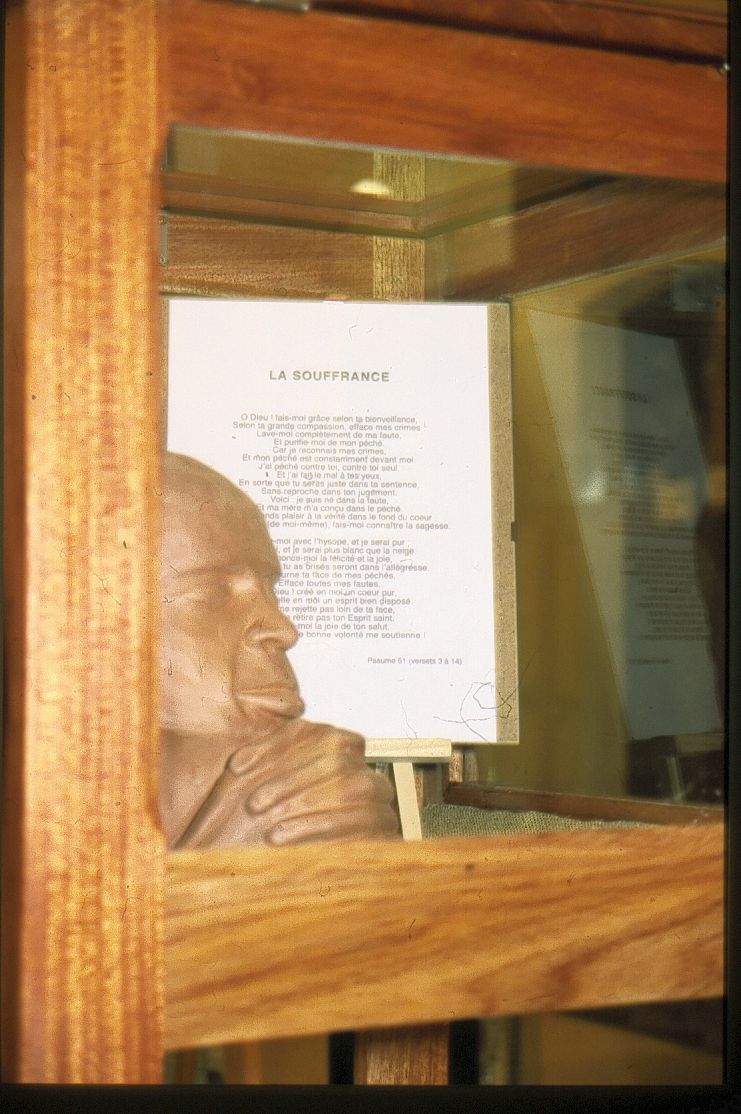 LA SOUFFRANCE
O Dieu ! fais-moi grâce selon ta bienveillance,
Selon ta grande compassion, efface mes crimes
Lave-moi complètement de ma faute,
Et purifie-moi de mon péché.
Car je reconnais mes crimes,
Et mon péché est constamment devant moi.
J'ai péché contre toi, contre toi seul,
Et j'ai fait le mal à tes yeux,
En sorte que tu seras juste dans ta sentence,
Sans reproche dans ton jugement.
Voici : je suis né dans la faute,
Et ma mère m'a conçu dans le péché.
plaisir à la vérité dans le fond du coeur
(de moi-même), fais-moi connaître la sagesse.
avec l'hysope, et je serai pur
et je serai plus blanc que la neige
la félicité et la joie,
tu as brisés seront dans l'allégresse
ta face de mes péchés,
Efface toutes mes fautes.
Dieu ! créé en moi un coeur pur,
en moi un esprit bien disposé
rejette pas loin de ta face,
retire pas ton Esprit saint.
la joie de ton salut,
bonne volonté me soutienne !
Psaume 51 (versets 3 à 14)